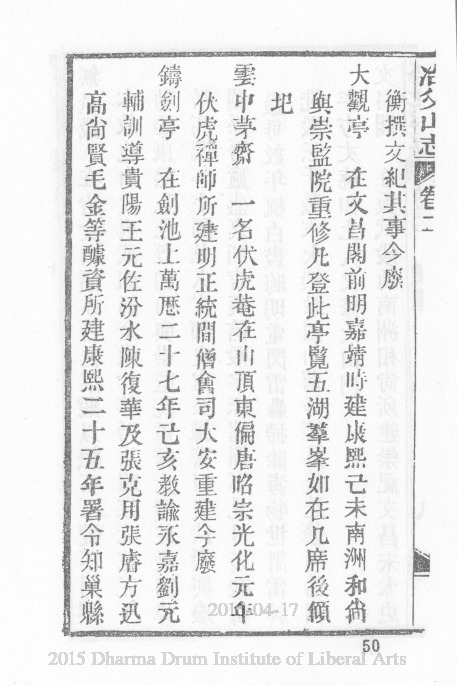 冶父山志 卷二
衡撰文紀其事今廢
大觀亭 在文昌閣前明嘉靖時建康熙己未南洲和尚
與崇監院重修凡登此亭覽五湖羣峯如在几席後傾
圯
雲中茅齋 一名伏虎菴在山頂東偏唐昭宗光化元年
伏虎禪師所建明正統間僧會司大安重建今廢
鑄劍亭 在劍池上萬厯二十七年己亥教諭永嘉劉元
輔訓導貴陽王元佐汾水陳復華及張克用張膚方迅
高尚賢毛金等醵資所建康熙二十五年署令知巢縣
2015-04-17
50
2015 Dharma Drum Institute of Liberal Arts